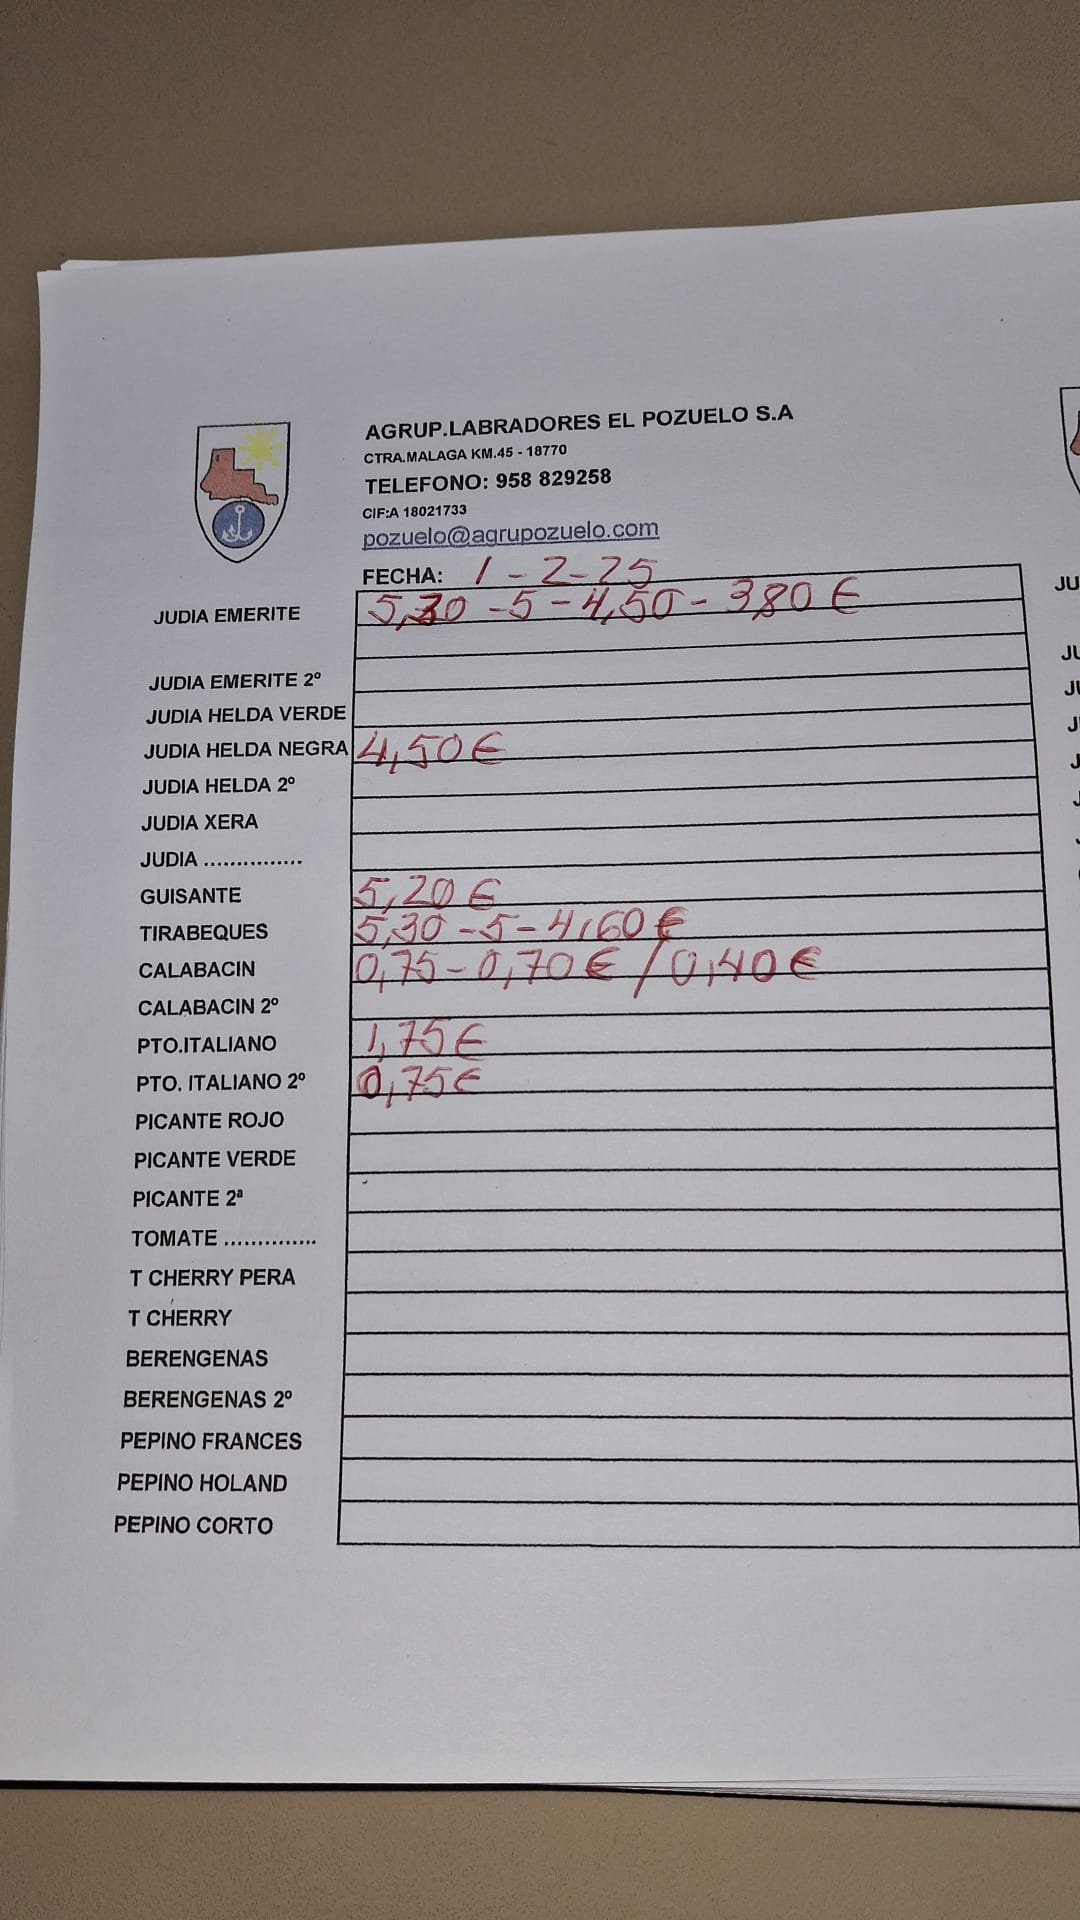 AGRUP.LABRADORES EL POZUELO S.A
CTRA.MALAGA KM.45 - 18770
TELEFONO: 958 829258
CIF:A 18021733
pozuelo@agrupozuelo.com
FECHA: 1-2-25
JUDIA EMERITE 5,30 - 5 - 4,50 - 3,80 €
JUDIA EMERITE 2º
JUDIA HELDA VERDE
JUDIA HELDA NEGRA 4,50 €
JUDIA HELDA 2º
JUDIA XERA
JUDIA ...............
GUISANTE 5,20 €
TIRABEQUES 5,30 - 5 - 4,60 €
CALABACIN 0,75 - 0,70 € / 0,40 €
CALABACIN 2º
PTO.ITALIANO 1,75 €
PTO. ITALIANO 2º 0,75 €
PICANTE ROJO
PICANTE VERDE
PICANTE 2ª
TOMATE ..............
T CHERRY PERA
T CHERRY
BERENGENAS
BERENGENAS 2º
PEPINO FRANCES
PEPINO HOLAND
PEPINO CORTO
JU
JU
JU
J
J